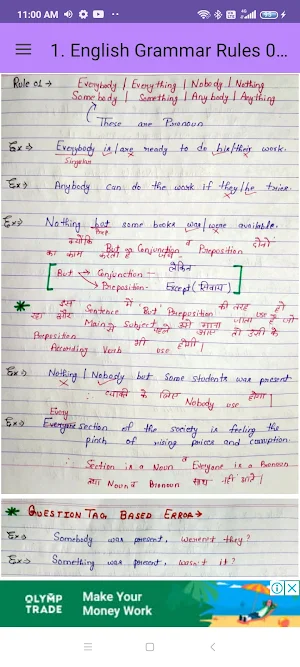 11:00 AM
99
1. English Grammar Rules 0...
Rule 01 → Everybody | Everything | Nobody | Nothing
Somebody | Something | Anybody | Anything
These are Pronoun
Ex⇒ Everybody is/are ready to do his/their work.
Singular
Ex⇒ Anybody can do the work if they/he tries.
Ex⇒ Nothing but some books was/were available.
Prep.
क्योंकि But → Conjunction व Preposition दोनों
का काम करता है
[But → Conjunction - लेकिन
→ Preposition - Except (सिवाय)]
* इस Sentence में 'But' Preposition की तरह use हो
रहा और Main Subject पहले
Preposition
According Verb भी use होगी।
Ex⇒ Nothing | Nobody but some students was present
व्यक्ति के लिए Nobody use होगा।
Every
Ex⇒ Everyone section of the society is feeling the
pinch of rising prices and corruption.
: Section is a Noun व Everyone is a Pronoun
तथा Noun व Pronoun साथ नहीं आते।
* QUESTION TAG BASED ERROR→
Ex⇒ Somebody was present, weren't they?
Ex⇒ Something was present, wasn't it?
OLYMP TRADE
Make Your
Money Work